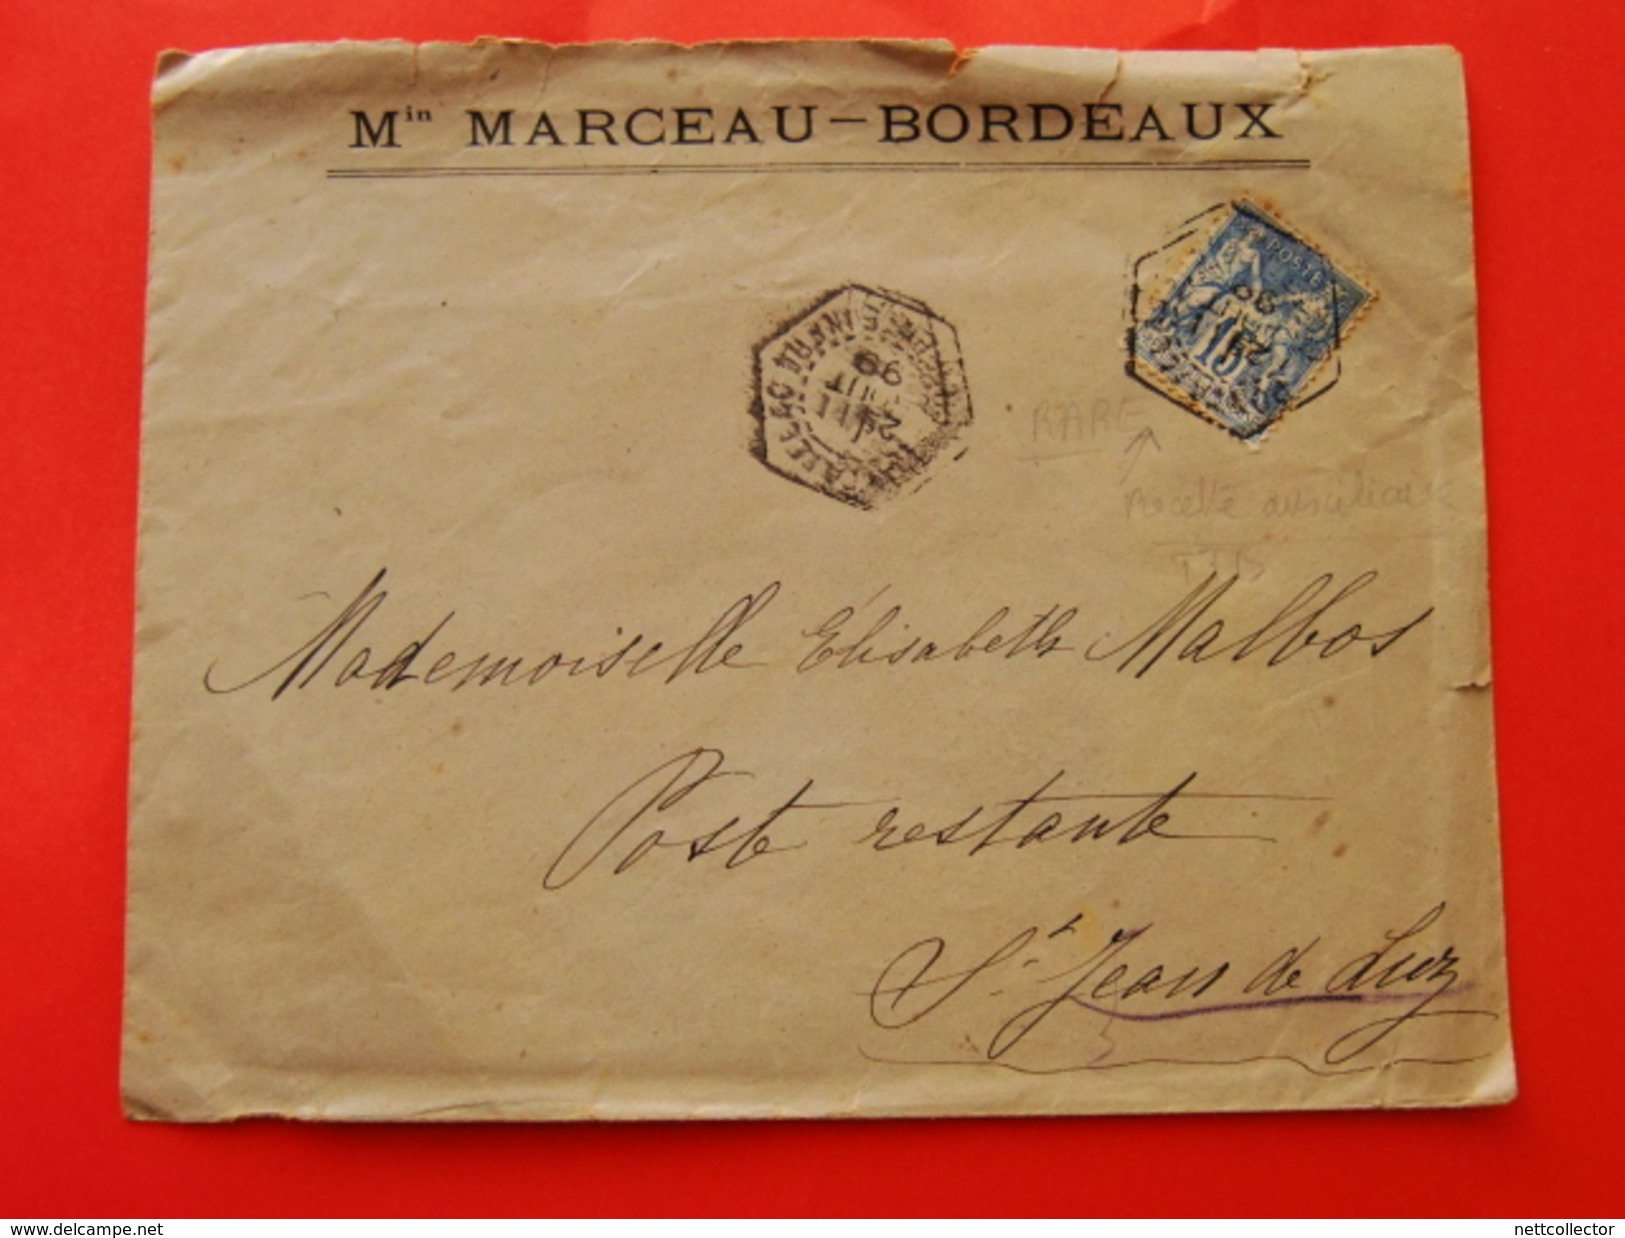 Min MARCEAU-BORDEAUX
POSTE
15
99
RARE
Recette auxiliaire
Mademoiselle Élisabeth Malbos
Poste restante
St Jean de Luz
delcampe.net
nettcollector